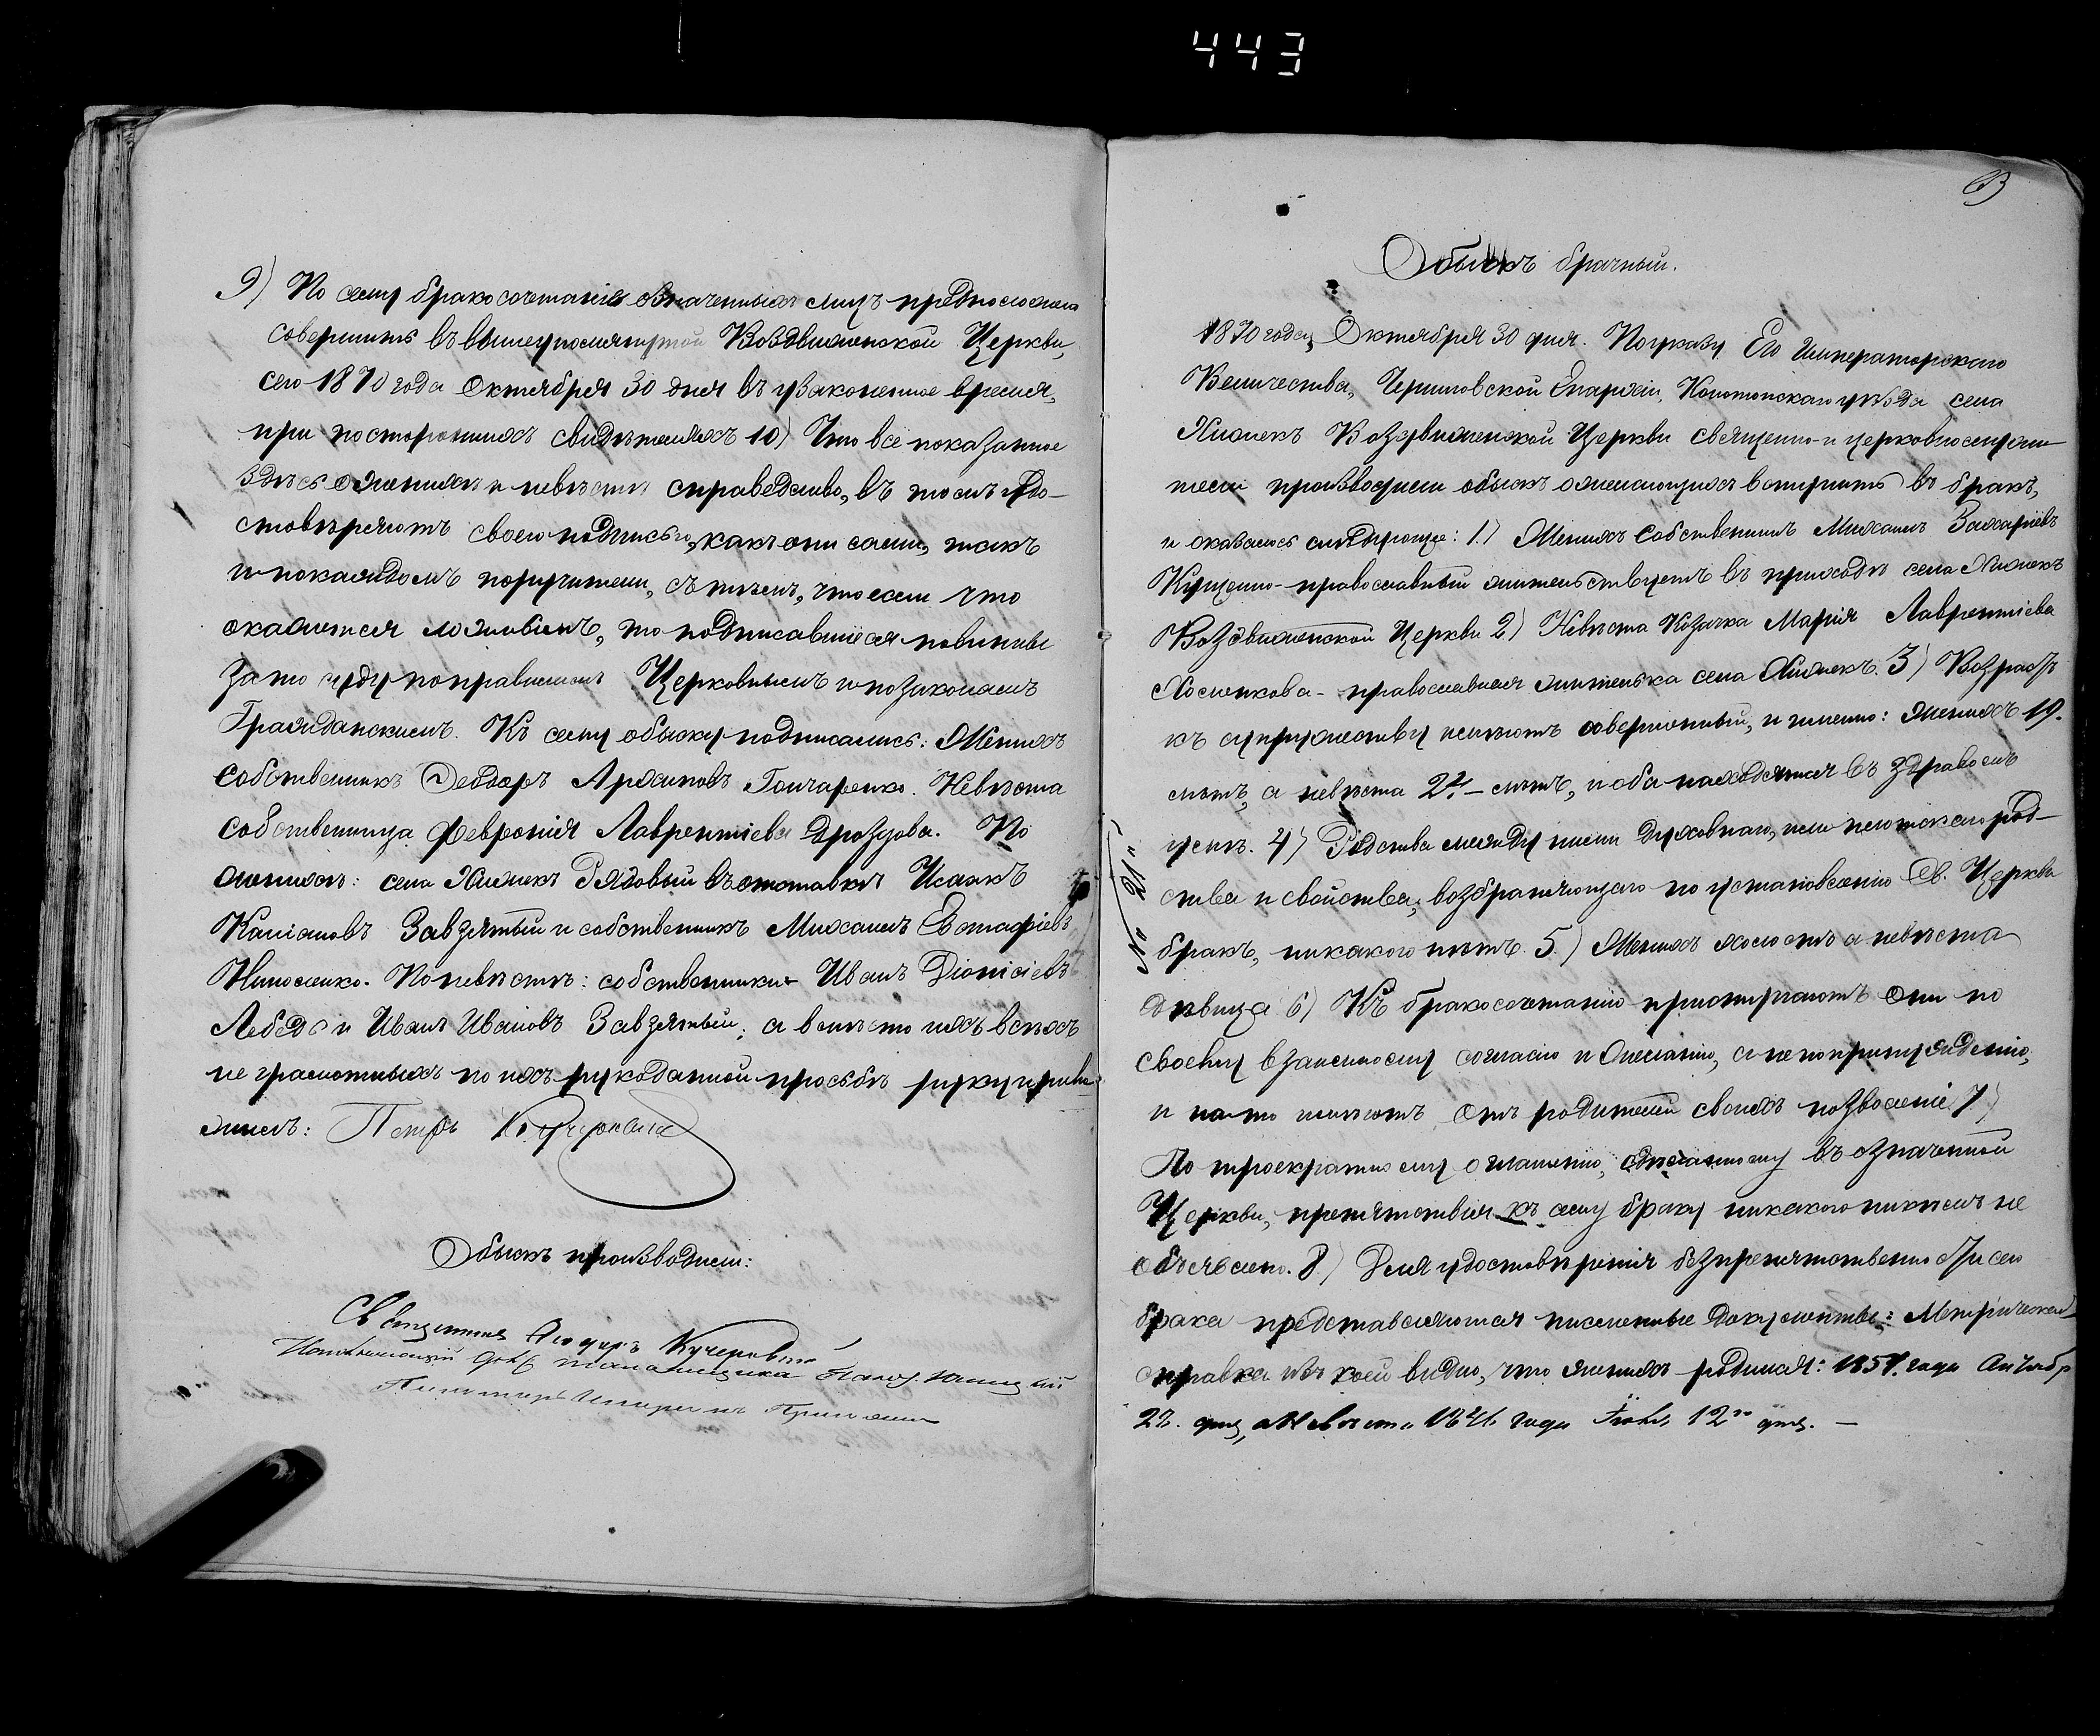 443
9) По сему бракосочетаніе означенныхъ лицъ предположено
совершить въ вышеупомянутой Воздвиженской Церкви,
сего 1870 года Октября 30 дня въ узаконенное время,
при постороннихъ свидѣтеляхъ 10) Что все показанное
здѣсь о женихѣ и невѣстѣ справедливо, въ томъ удо-
стовѣряютъ своею подписью, какъ они сами, такъ
и по каждомъ поручители, съ тѣмъ, что если что
окажется ложнымъ, то подписавшіеся повинны
за то суду по правиламъ Церковнымъ и по законамъ
Гражданскимъ. Къ сему обыску подписались: Женихъ
собственникъ Ѳеодоръ Гончаренко. Невѣста
собственница Февронія Лаврентіева Дроздова. По
женихѣ: села Хижекъ Рядовый въ отставкѣ Исаакъ
Завзятый и собственникъ Михаилъ Евстафіевъ
По невѣстѣ: собственники Иванъ Діонисіевъ
Лебедь и Иванъ Ивановъ Завзятый; а вмѣсто ихъ всѣхъ
не грамотныхъ по ихъ рукоданной просьбѣ руку прило-
жилъ: Петръ
Обыскъ производили:
Священникъ Кучеровскій
Обыскъ брачный.
1870 года, Октября 30 дня. По указу Его Императорскаго
Величества, Черниговской Епархіи, Конотопскаго уѣзда села
Хижекъ Воздвиженской Церкви священно-и церковнослужи-
тели производили обыскъ о желающихъ вступить въ бракъ,
и оказалось слѣдующее: 1.) Женихъ собственникъ Михаилъ Захаріевъ
Кущенко-православный жительствуетъ въ приходѣ села Хижекъ
Воздвиженской Церкви 2) Невѣста Козачка Марія Лаврентіева
православная жителька села Хижекъ. 3) Возрастъ
къ супружеству имѣютъ совершенный, и именно: женихъ 19.
лѣтъ, а невѣста 24.-лѣтъ, и оба находятся въ здравомъ
умѣ. 4) Родства между ними духовнаго, или плотскаго род-
ства и свойства, возбраняющаго по установленію Св. Церкви
бракъ, никакого нѣтъ. 5.) Женихъ холостъ а невѣста
дѣвица 6) Къ бракосочетанію приступаютъ они по
своему взаимному согласію и желанію, а не по принужденію,
и на-то имѣютъ отъ родителей своихъ позволеніе 7.)
По троекратному оглашенію, сдѣланному въ означенной
Церкви, препятствія къ сему браку никакого никѣмъ не
объявлено. 8.) Для удостовѣренія безпрепятственности сего
брака представляются письменные документы: Метрическая
справка изъ коей видно, что женихъ родился: 1851. года
22. дня, а Невѣста 1846 года 12го дня. —
№ 21"